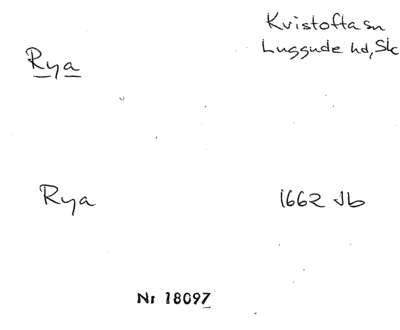 Kvistofta sn
Luggude hd, Sk
Rya
Rya 1662 Jb
Nr 18097